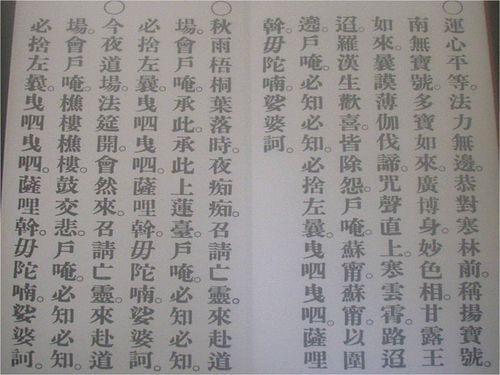 〇運心平等。法力無邊。恭對寒林前。稱揚寶
南無寶號。多寶如來。廣博身。妙色相。甘露王
如來。曩謨薄伽伐諦。咒聲直上。寒雲霄。路迢
迢。羅漢生歡喜。皆除怨。戶唵。蘇甯。蘇甯以圍
遶。戶唵。必知必知。必捨左曩。曳呬曳呬。薩哩
幹。毋陀喃。娑婆訶。
〇秋雨梧桐葉落時。夜痴痴。召請亡靈來赴道
場。會戶唵。承此。承此上蓮臺。戶唵。必知必知。
必捨左曩。曳呬曳呬。薩哩幹。毋陀喃。娑婆訶。
〇今夜道場。法筵開。會然來。召請亡靈來赴道
場。會戶唵。樵樓樵樓。鼓交悲。戶唵。必知必知。
必捨左曩。曳呬曳呬。薩哩幹。毋陀喃。娑婆訶。